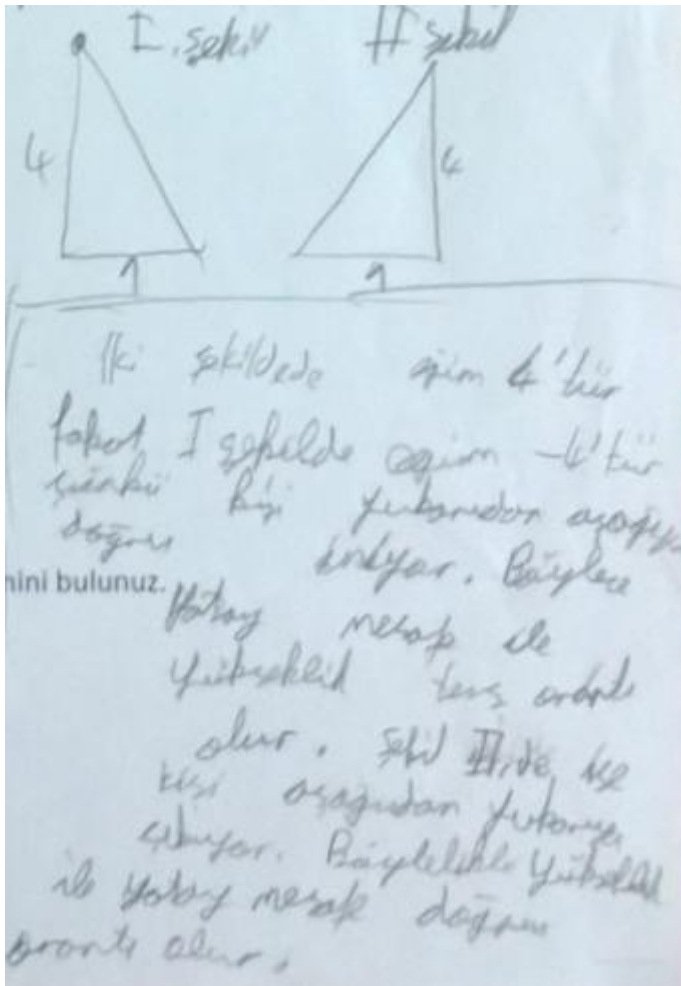 I. şekil II şekil
4 4
1 1
İki şekildede eğim 4'tür
fakat I şekilde eğim -4'tür
çünkü kişi yukarıdan aşağıya
doğru iniyor. Böylece
nini bulunuz.
Yatay mesafe ile
yükseklik ters orantı
olur. Şekil II.de ise
kişi aşağıdan yukarıya
çıkıyor. Böylelikle yükseklik
ile yatay mesafe doğru
orantı olur.